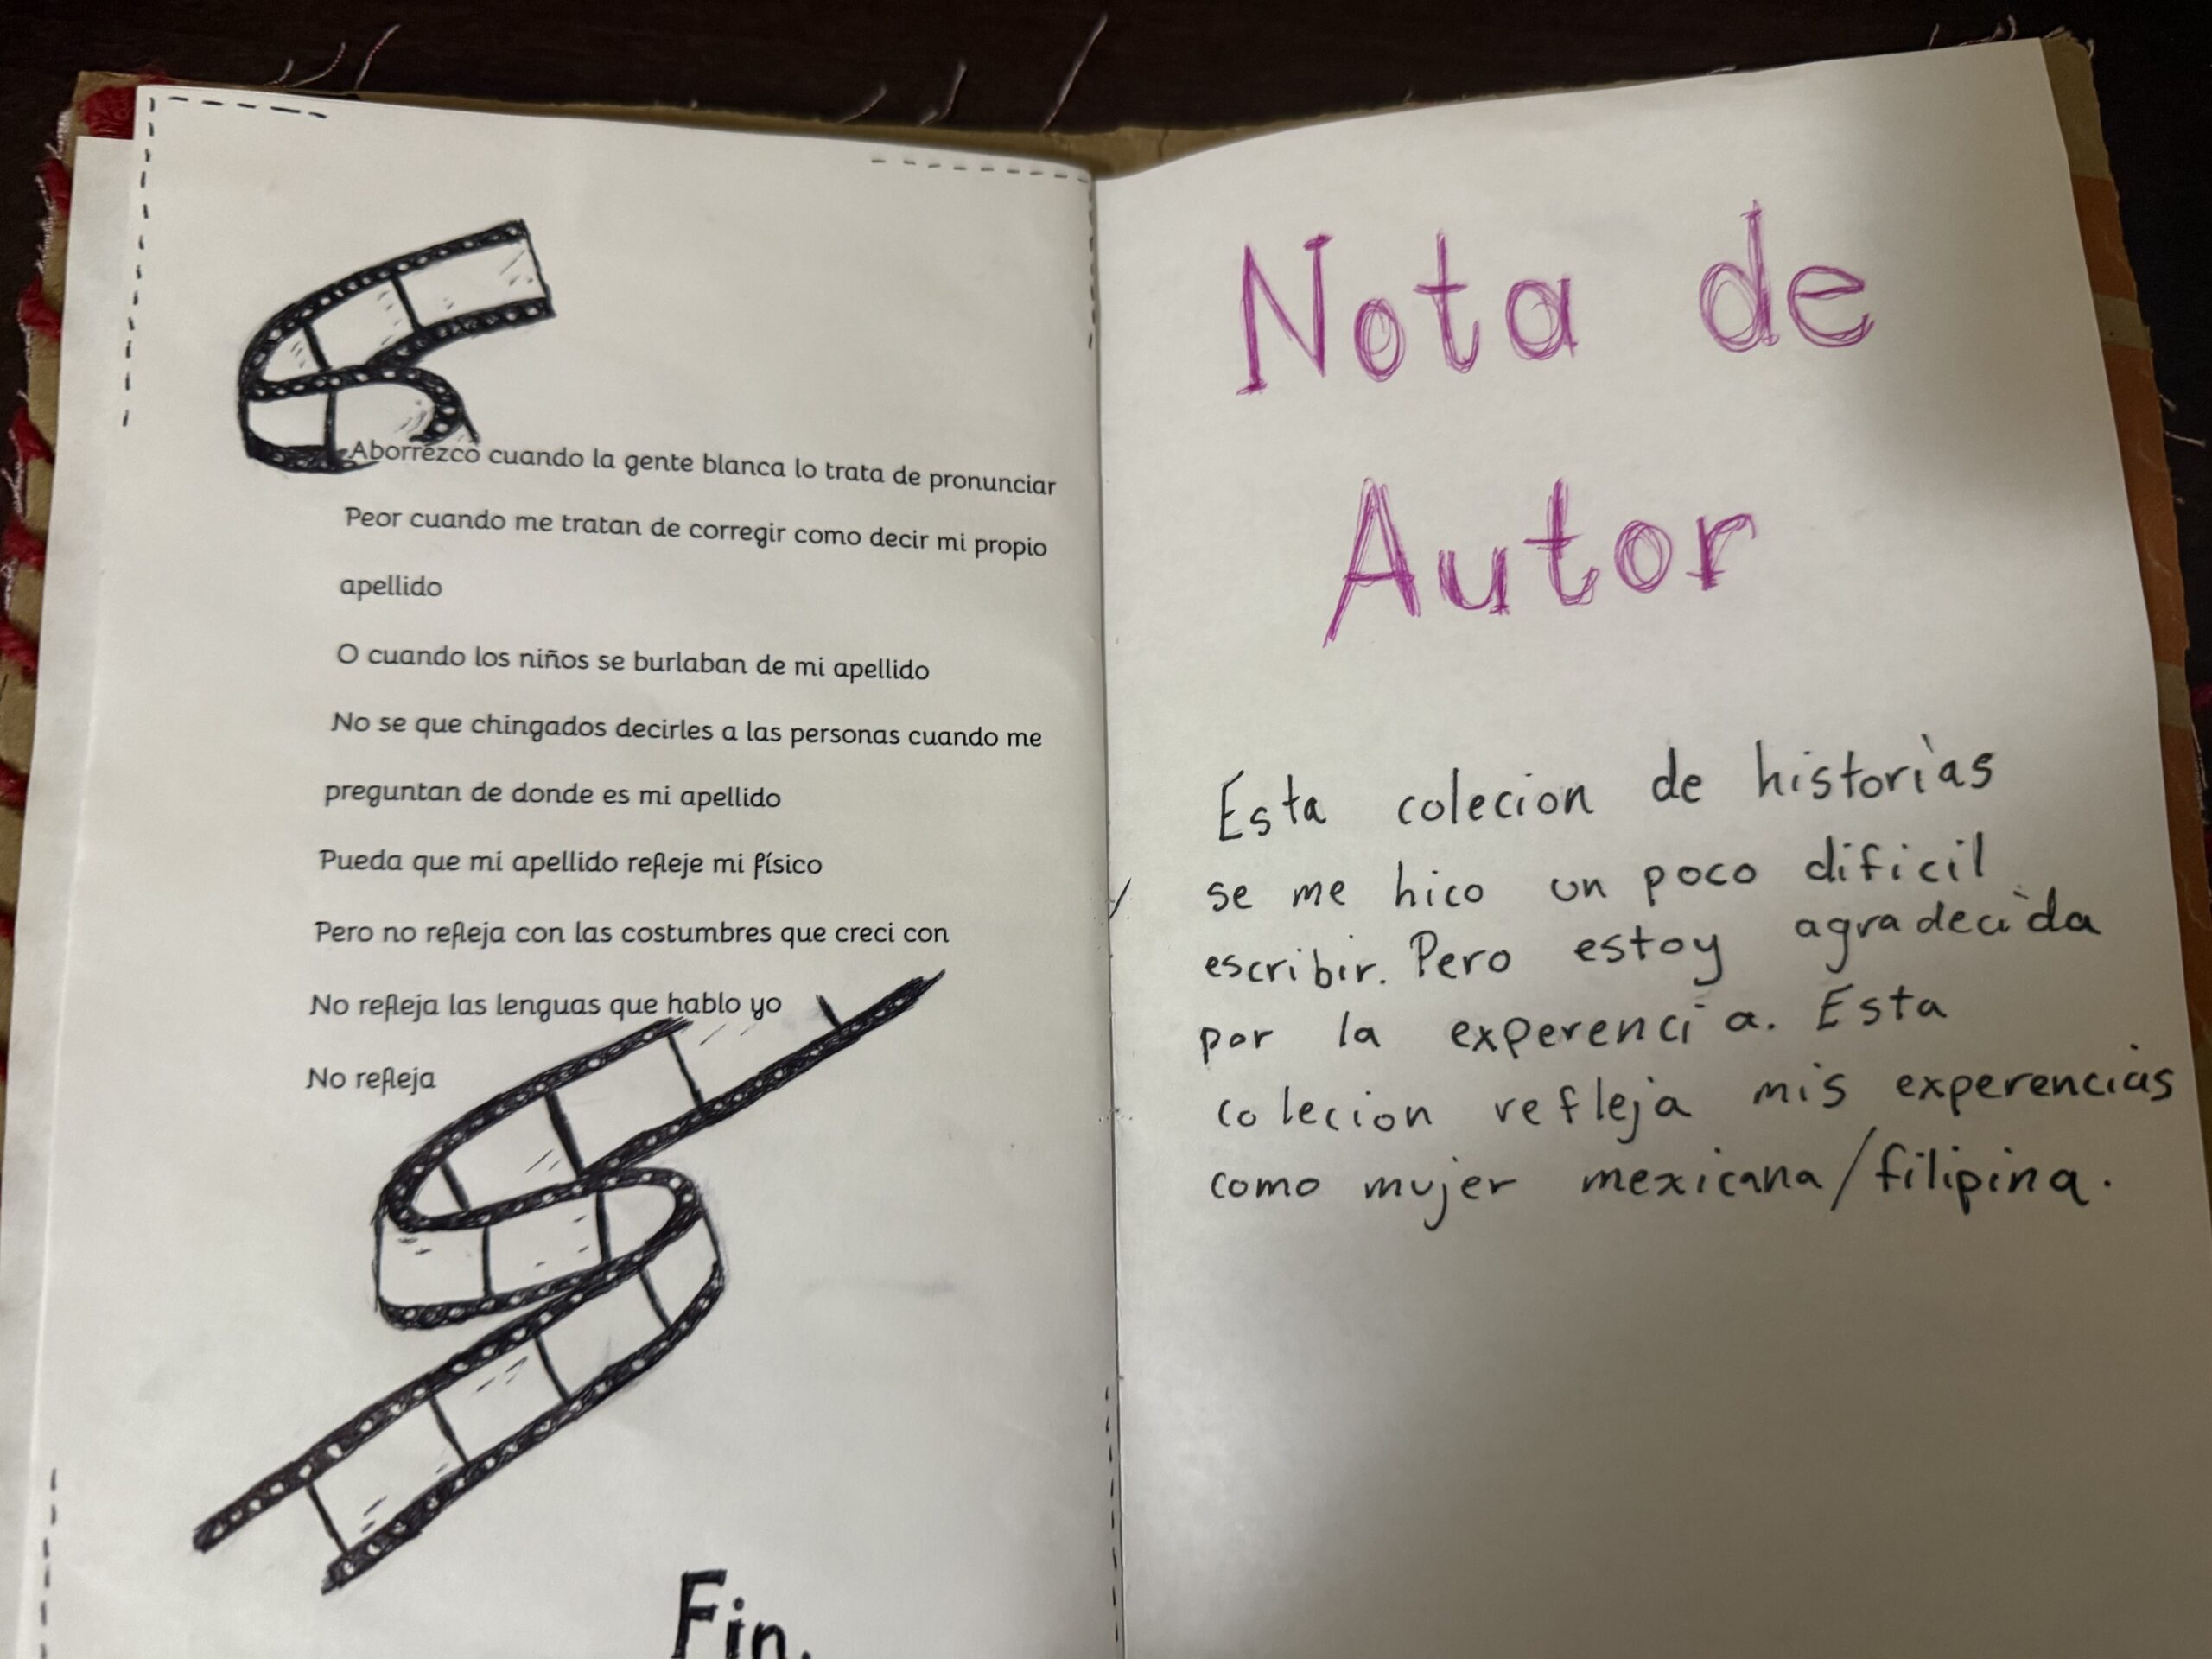 Aborrezco cuando la gente blanca lo trata de pronunciar
Peor cuando me tratan de corregir como decir mi propio
apellido
O cuando los niños se burlaban de mi apellido
No se que chingados decirles a las personas cuando me
preguntan de donde es mi apellido
Pueda que mi apellido refleje mi físico
Pero no refleja con las costumbres que creci con
No refleja las lenguas que hablo yo
No refleja
Fin.
Nota de
Autor
Esta colecion de historias
se me hico un poco dificil
escribir. Pero estoy agradecida
por la experencia. Esta
colecion refleja mis experencias
como mujer mexicana/filipina.